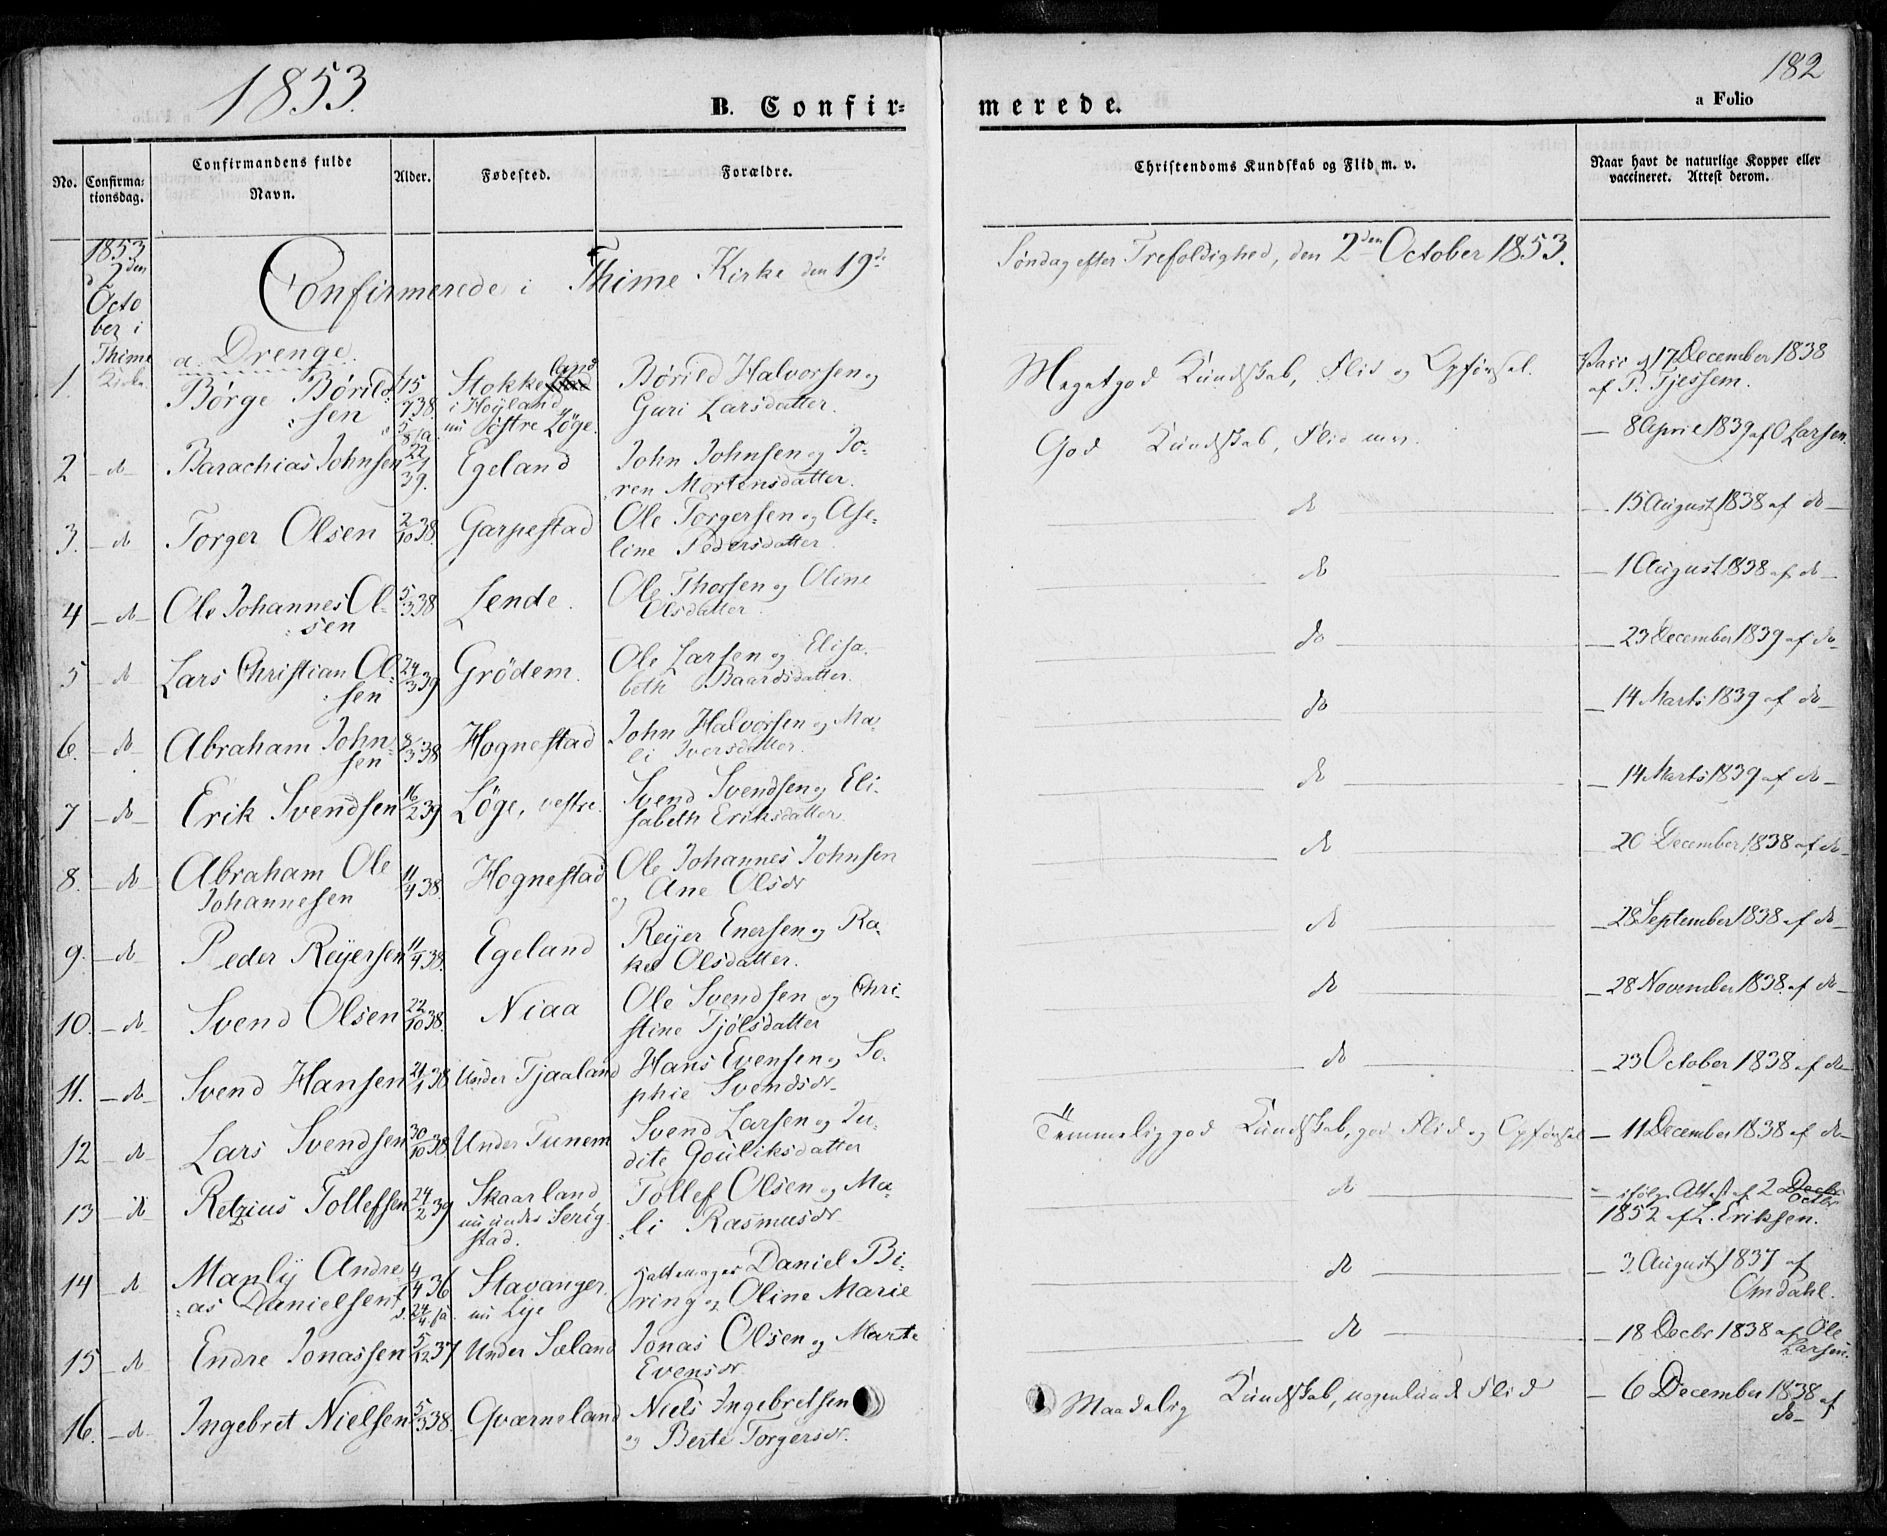 1853.
182
B. Confir=
merede.
a Folio
No.
Confirma=
tionsdag.
Confirmandens fulde
Navn.
Alder.
Fødested.
Forældre.
Christendoms Kundskab og Flid m. v.
Naar havt de naturlige Kopper eller
vaccineret. Attest derom.
1853
2den
Octo
ber i
Thime
Kirke
Confirmerede i Thime Kirke den 19de
Søndag efter Trefoldighed, den 2den October 1853.
a. Drenge.
1.
Børge Børild
sen
15/7 38.
Stokkeland
i Høyland
nu Østre Løge.
Børild Halvorsen og
Guri Larsdatter.
Megetgod Kundskab, Flid og Opførsel.
Vacc. 17 December 1838
af P. Tjessem.
2 -do- Barachias Johnsen 22/1 39. Egeland
John Johnsen og Jo-
ren Mortensdatter.
God Kundskab, Flid m.v.
- 8 April 1839 af O Larsen.
3. -do Torger Olsen 2/10 38. Garpestad
Ole Torgersen og Ase-
line Pedersdatter.
do
- 15 August 1838 af do-
4 -do- Ole Johannes Ol-
sen
5/3 38 Lende.
Ole Thorsen og Oline
Olsdatter.
do
- 1 August 1838 af do-
5 -do Lars Christian Ol-
sen
24/3 39 Grödem.
Ole Larsen og Elisa-
beth Baardsdatter.
do
- 23 December 1839 af do
6. -do Abraham John-
sen
8/3 38 Hognestad
John Halvorsen og Ma-
li Iversdatter.
do
- 14 Marts 1839 af do-
7 -do- Erik Svendsen 16/2 39 Løge, vestre.
Svend Svendsen og Eli-
sabeth Eriksdatter.
do
- 14 Marts 1839 af do-
8. -do- Abraham Ole
Johannesen
11/4 38. Hognestad
Ole Johannes Johnsen
og Ane Olsdr
do
- 20 December 1838 af do-
9. -do- Peder Reyersen 11/4 38. Egeland
Reyer Enersen og Ra-
kel Olsdatter.
do
- 28 September 1838 af do-
10. -do- Svend Olsen 22/10 38. Niaa
Ole Svendsen og Chri-
stine Tjølsdatter
do
- 28 November 1838. af do-
11. -do- Svend Hansen 21/1 38 Under Tjaaland
Hans Evensen og So-
phie Svendsdr-
do
- 23 October 1838 af do-
12 -do- Lars Svendsen 30/10 38 Under Tunem
Svend Larsen og Ju-
dite Gouliksdatter
Temmeliggod Kundskab, god Flid og Opførsel
- 11 December 1838 af do-
13 -do Retzius Tollefsen 24/2 39 Skaarland
nu under Serig-
stad.
Tollef Olsen og Ma-
li Rasmusdr-
do
- ifølge Attest af 2 Decbr
Octbr
1852 af L. Eriksen.
14 -do Manly Andre
as Danielsen
4/4 36 Stavanger
nu Lye
Daniel Bi-
ring og Oline Marie
do
- 3 August 1837 af
Omdahl.
15 -do Endre Jonassen 5/12 37 Under Sæland
Jonas Olsen og Marte
Evensdr.
do
- 18 Decbr 1838 af Ole
Larsen.
16. -do- Ingebret Nielsen 5/3 38. Qværneland
Niels Ingebretsen
og Berte Torgersdr.
Maadelig Kundskab, nogenlunde Flid
- 6 December 1838 af
do-